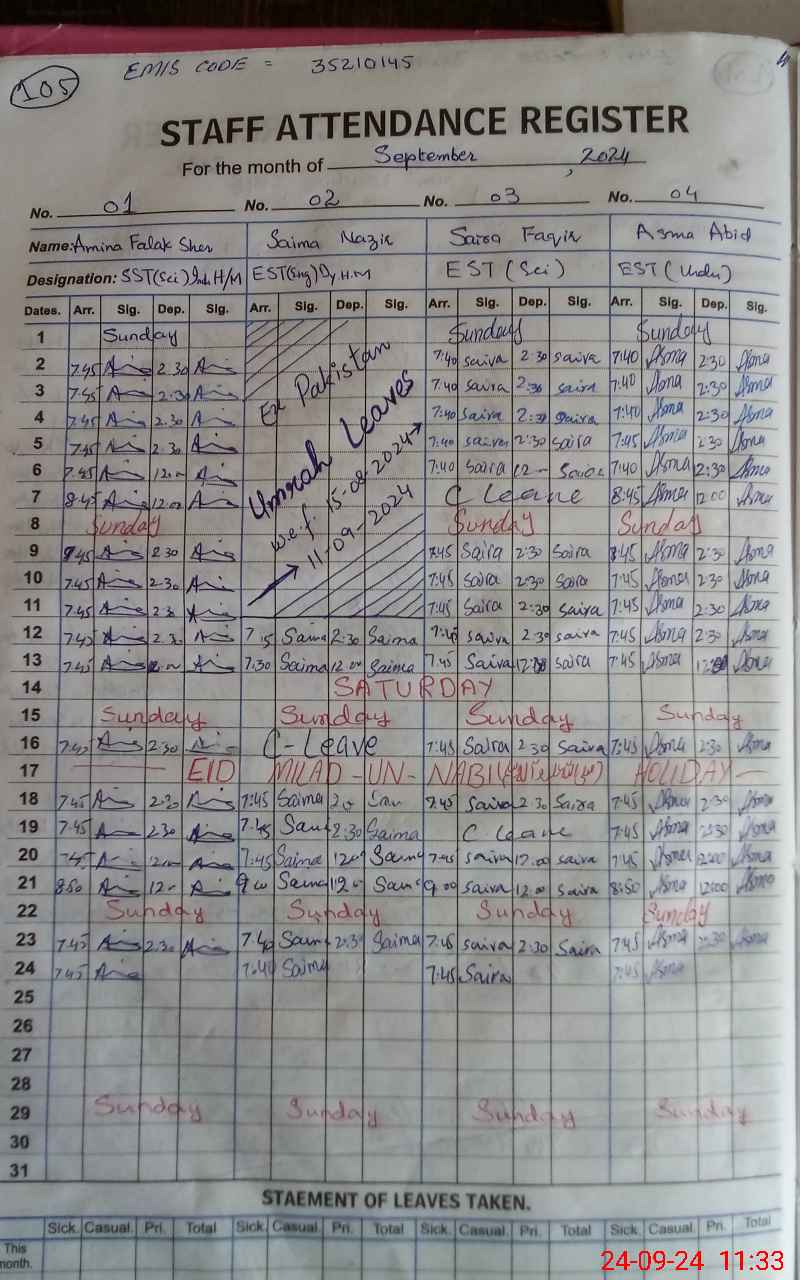 105
EMIS CODE = 35210145
STAFF ATTENDANCE REGISTER
For the month of September, 2024
No. 01 No. 02 No. 03 No. 04
Name: Amina Falak Sher Saima Nazir Saira Faqir Asma Abid
Designation: SST(Sci) H/M EST(Eng) Dy.H.M EST (Sci) EST (Urdu)
Dates. Arr. Sig. Dep. Sig. Arr. Sig. Dep. Sig. Arr. Sig. Dep. Sig. Arr. Sig. Dep. Sig.
1 Sunday Sunday Sunday
2 7.45 2.30 7:40 saira 2:30 saira 7:40 Asma 2:30 Asma
3 7.45 2.30 7:40 saira 2:30 saira 7:40 Asma 2:30 Asma
4 7.45 2.30 7:40 saira 2:30 saira 7:40 Asma 2:30 Asma
5 7.45 2.30 7:40 saira 2:30 saira 7:45 Asma 2:30 Asma
6 7.45 12.00 7:40 saira 12 saira 7:40 Asma 12:30 Asma
7 8.45 12.00 C leave 8:45 Asma 12:00 Asma
Ex Pakistan
Umrah Leaves
w.e.f. 15-08-2024→
11-09-2024
8 Sunday Sunday Sunday
9 2.30 8:45 Saira 2:30 Saira 8:45 Asma 2:30 Asma
10 7.45 2.30 7:45 Saira 2:30 Saira 7:45 Asma 2:30 Asma
11 7.45 2.30 7:45 Saira 2:30 saira 7:45 Asma 2:30 Asma
12 7.45 2.30 Saima 2:30 Saima 7:45 saira 2:30 saira 7:45 Asma 2:30 Asma
13 7.45 7.30 Saima 12.00 Saima 7:45 Saira saira 7:45 Asma Asma
14 SATURDAY
15 Sunday Sunday Sunday Sunday
16 7.45 2.30 C-Leave 7:45 Saira 2:30 Saira 7:45 Asma 2:30 Asma
17 EID MILAD-UN-NABI HOLIDAY
18 7.45 2.30 7:45 Saima 7:45 Saira 2:30 Saira 7:45 Asma 2:30 Asma
19 7.45 2.30 7.45 2:30 Saima C leave 7:45 Asma 2:30 Asma
20 7.45 12.00 7:45 Saima 12.00 7:45 saira 12.00 saira 7:45 Asma 12:00 Asma
21 8.50 12 9.00 12.00 9.00 saira 12.00 saira 8:50 Asma 12:00 Asma
22 Sunday Sunday Sunday Sunday
23 7.45 2.30 7.40 2:30 Saima 7:45 saira 2:30 Saira 7:45 Asma 2:30 Asma
24 7.45 7:40 Saima 7:45 Saira 7:45 Asma
25
26
27
28
29 Sunday Sunday Sunday Sunday
30
31
STAEMENT OF LEAVES TAKEN.
Sick. Casual. Pri. Total Sick. Casual. Pri. Total Sick. Casual. Pri. Total Sick. Casual. Pri. Total
This
month.
24-09-24 11:33